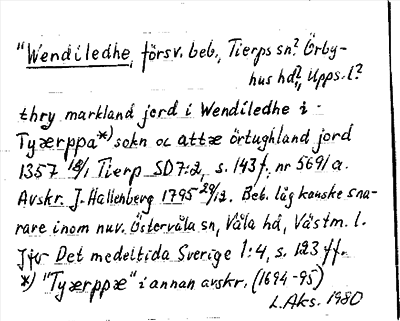 "Wendiledhe, försv. beb., Tierps sn? Örby-
hus hd?, Upps. l?
thry markland jord i Wendiledhe i
Tyærppa*) sokn oc attæ örtughland jord
1357 18/1 Tierp SD 7:2, s. 143 f. nr 5691 a.
Avskr. J. Hallenberg 1795 29/12. Beb. låg kanske sna-
rare inom nuv. Östervåla sn, Våla hd, Västm. l.
Jfr Det medeltida Sverige 1:4, s. 123 ff.
*) "Tyærppæ" i annan avskr. (1694-95)
L. Aks. 1980